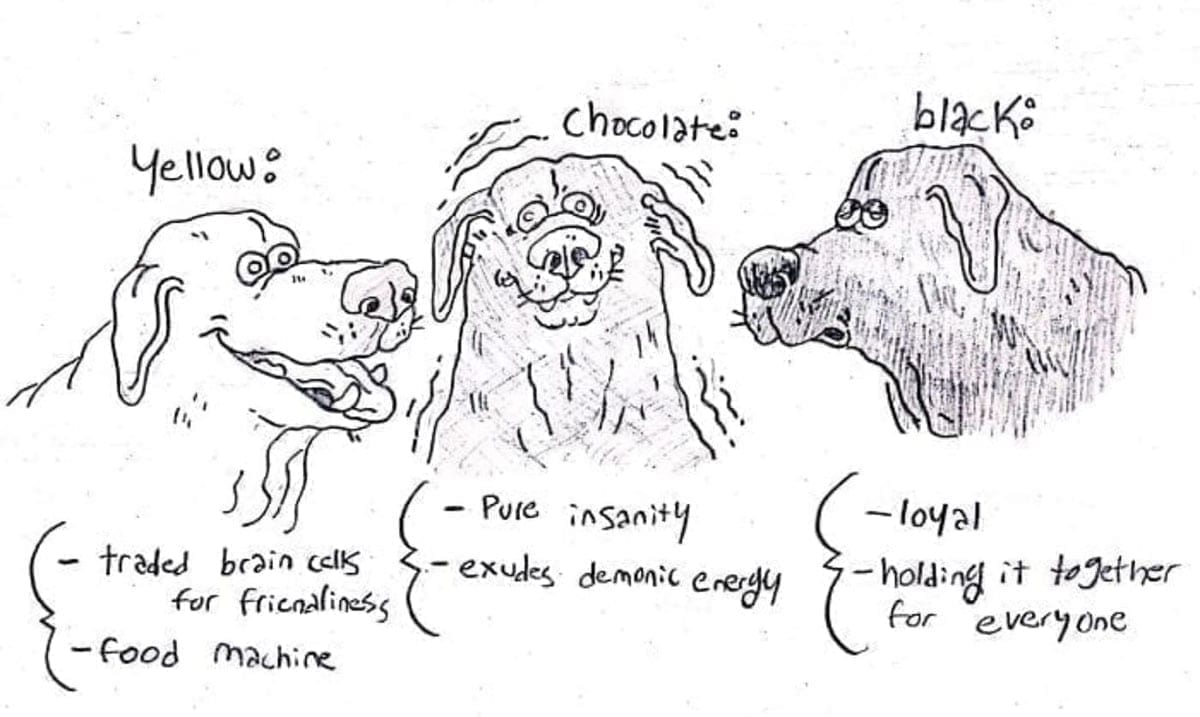 Yellow:
- traded brain cells
for friendliness
- food machine
Chocolate:
- Pure insanity
- exudes demonic energy
black:
- loyal
- holding it together
for everyone